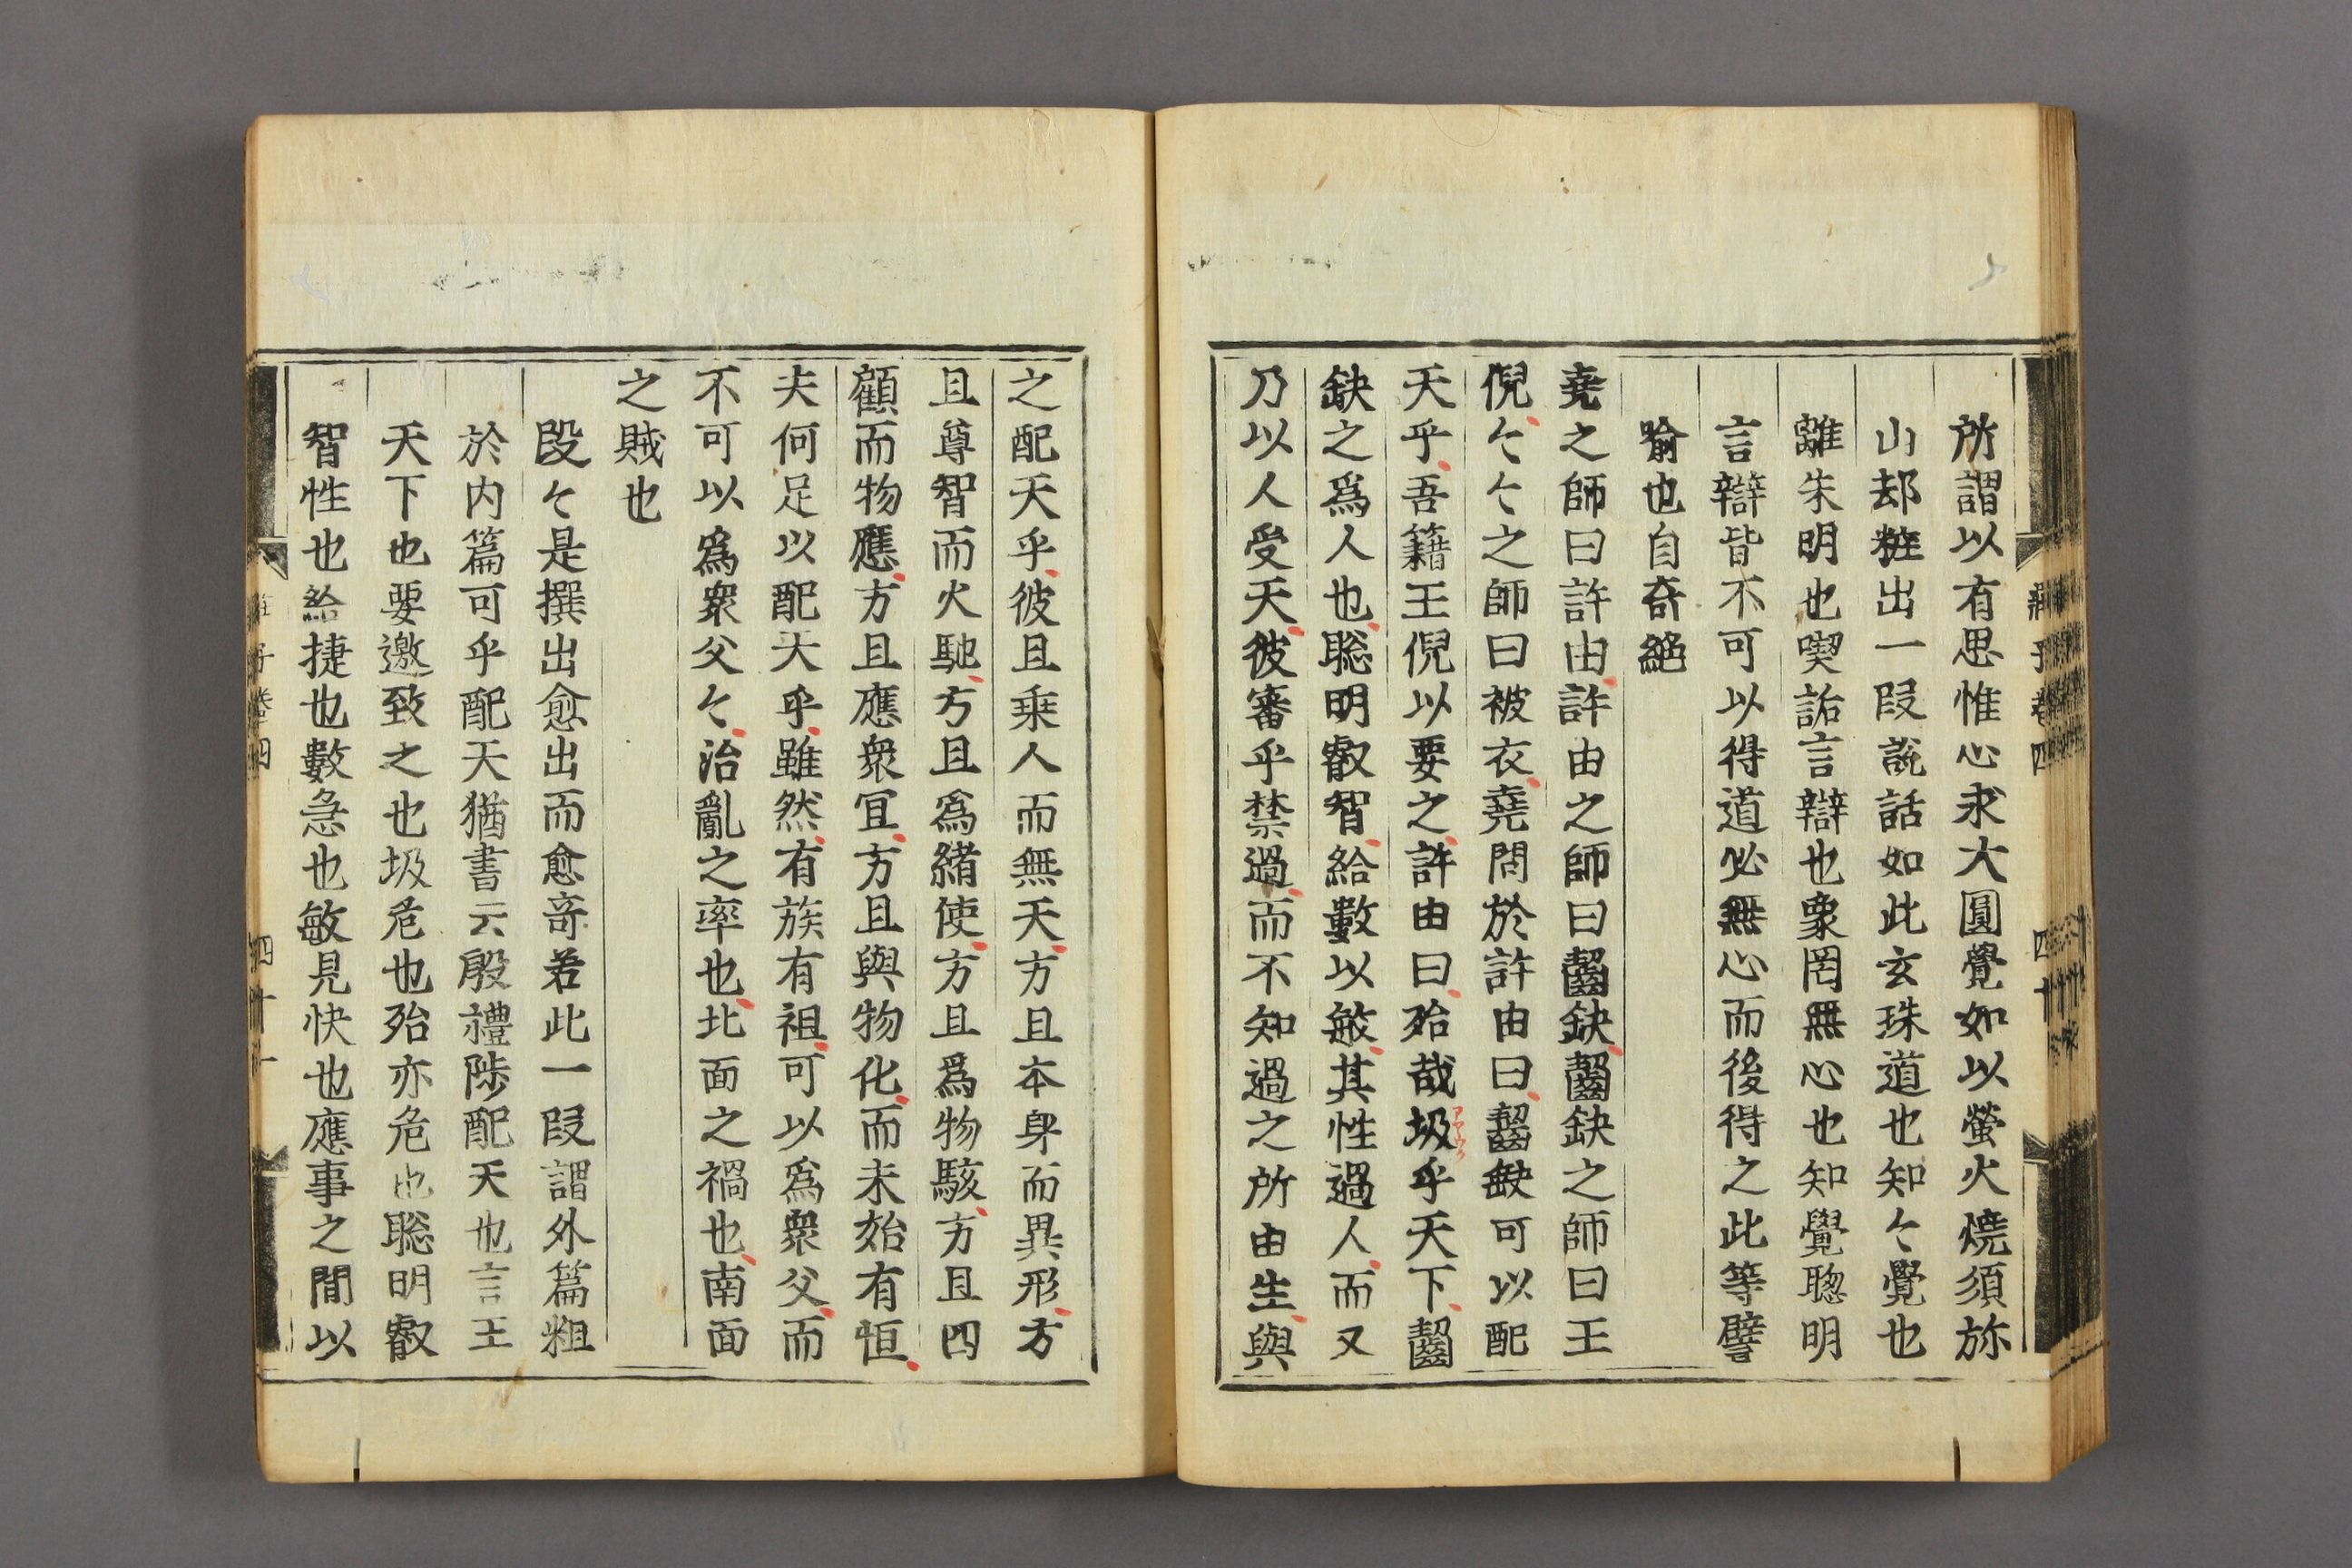 所謂以有思惟心求大圓覺如以螢火燒須旀
山却粧出一段說話如此玄珠道也知〻覺也
離朱明也喫詬言辯也象罔無心也知覺聰明
言辯皆不可以得道必無心而後得之此等譬
喻也自奇絕
堯之師曰許由許由之師曰齧缺齧缺之師曰王
倪〻〻之師曰被衣堯問於許由曰齧缺可以配
天乎吾籍王倪以要之許由曰殆哉圾乎天下齧
缺之爲人也聦明叡智給數以敏其性過人而又
乃以人受天彼審乎禁過而不知過之所由生與
之配天乎彼且乗人而無天方且本身而異形方
且尊智而火馳方且爲緖使方且爲物駭方且四
顧而物應方且應衆宜方且與物化而未始有恒
夫何足以配天乎雖然有族有祖可以爲衆父而
不可以爲衆父〻治亂之率也北面之禍也南面
之賊也
段〻是撰出愈出而愈奇若此一段謂外篇粗
於内篇可乎配天猶書云殷禮陟配天也言王
天下也要邀致之也圾危也殆亦危也聦明叡
智性也給捷也數急也敏見快也應事之間以
莊子卷四
四十一